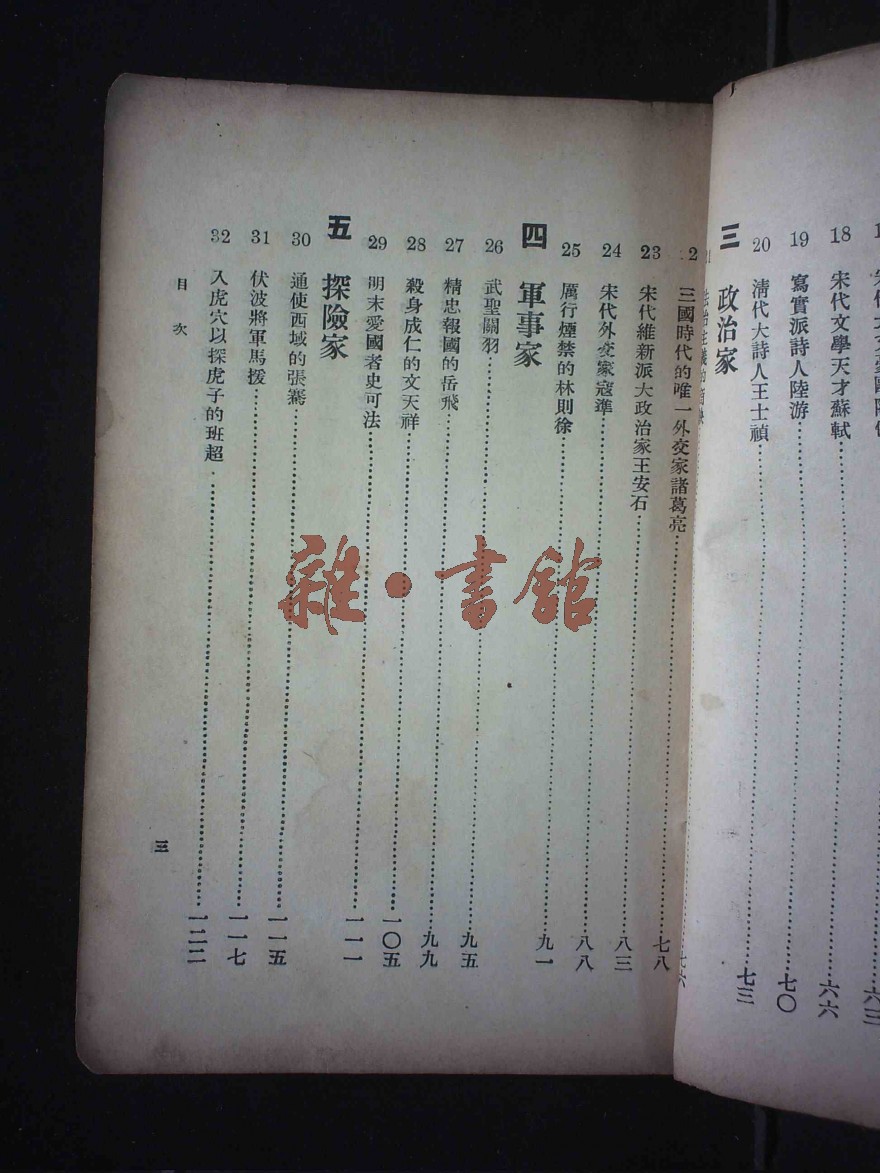 18 宋代文學天才蘇軾……六六
19 寫實派詩人陸游……七〇
20 清代大詩人王士禎……七三
三 政治家
七六
2 三國時代的唯一外交家諸葛亮……七八
23 宋代維新派大政治家王安石……八三
24 宋代外交家寇準……八八
25 厲行煙禁的林則徐……九一
四 軍事家
26 武聖關羽……九五
27 精忠報國的岳飛……九九
28 殺身成仁的文天祥……一〇五
29 明末愛國者史可法……一一一
五 探險家
30 通使西域的張騫……一一五
31 伏波將軍馬援……一一七
32 入虎穴以探虎子的班超……一二二
目次
三
雜·書館